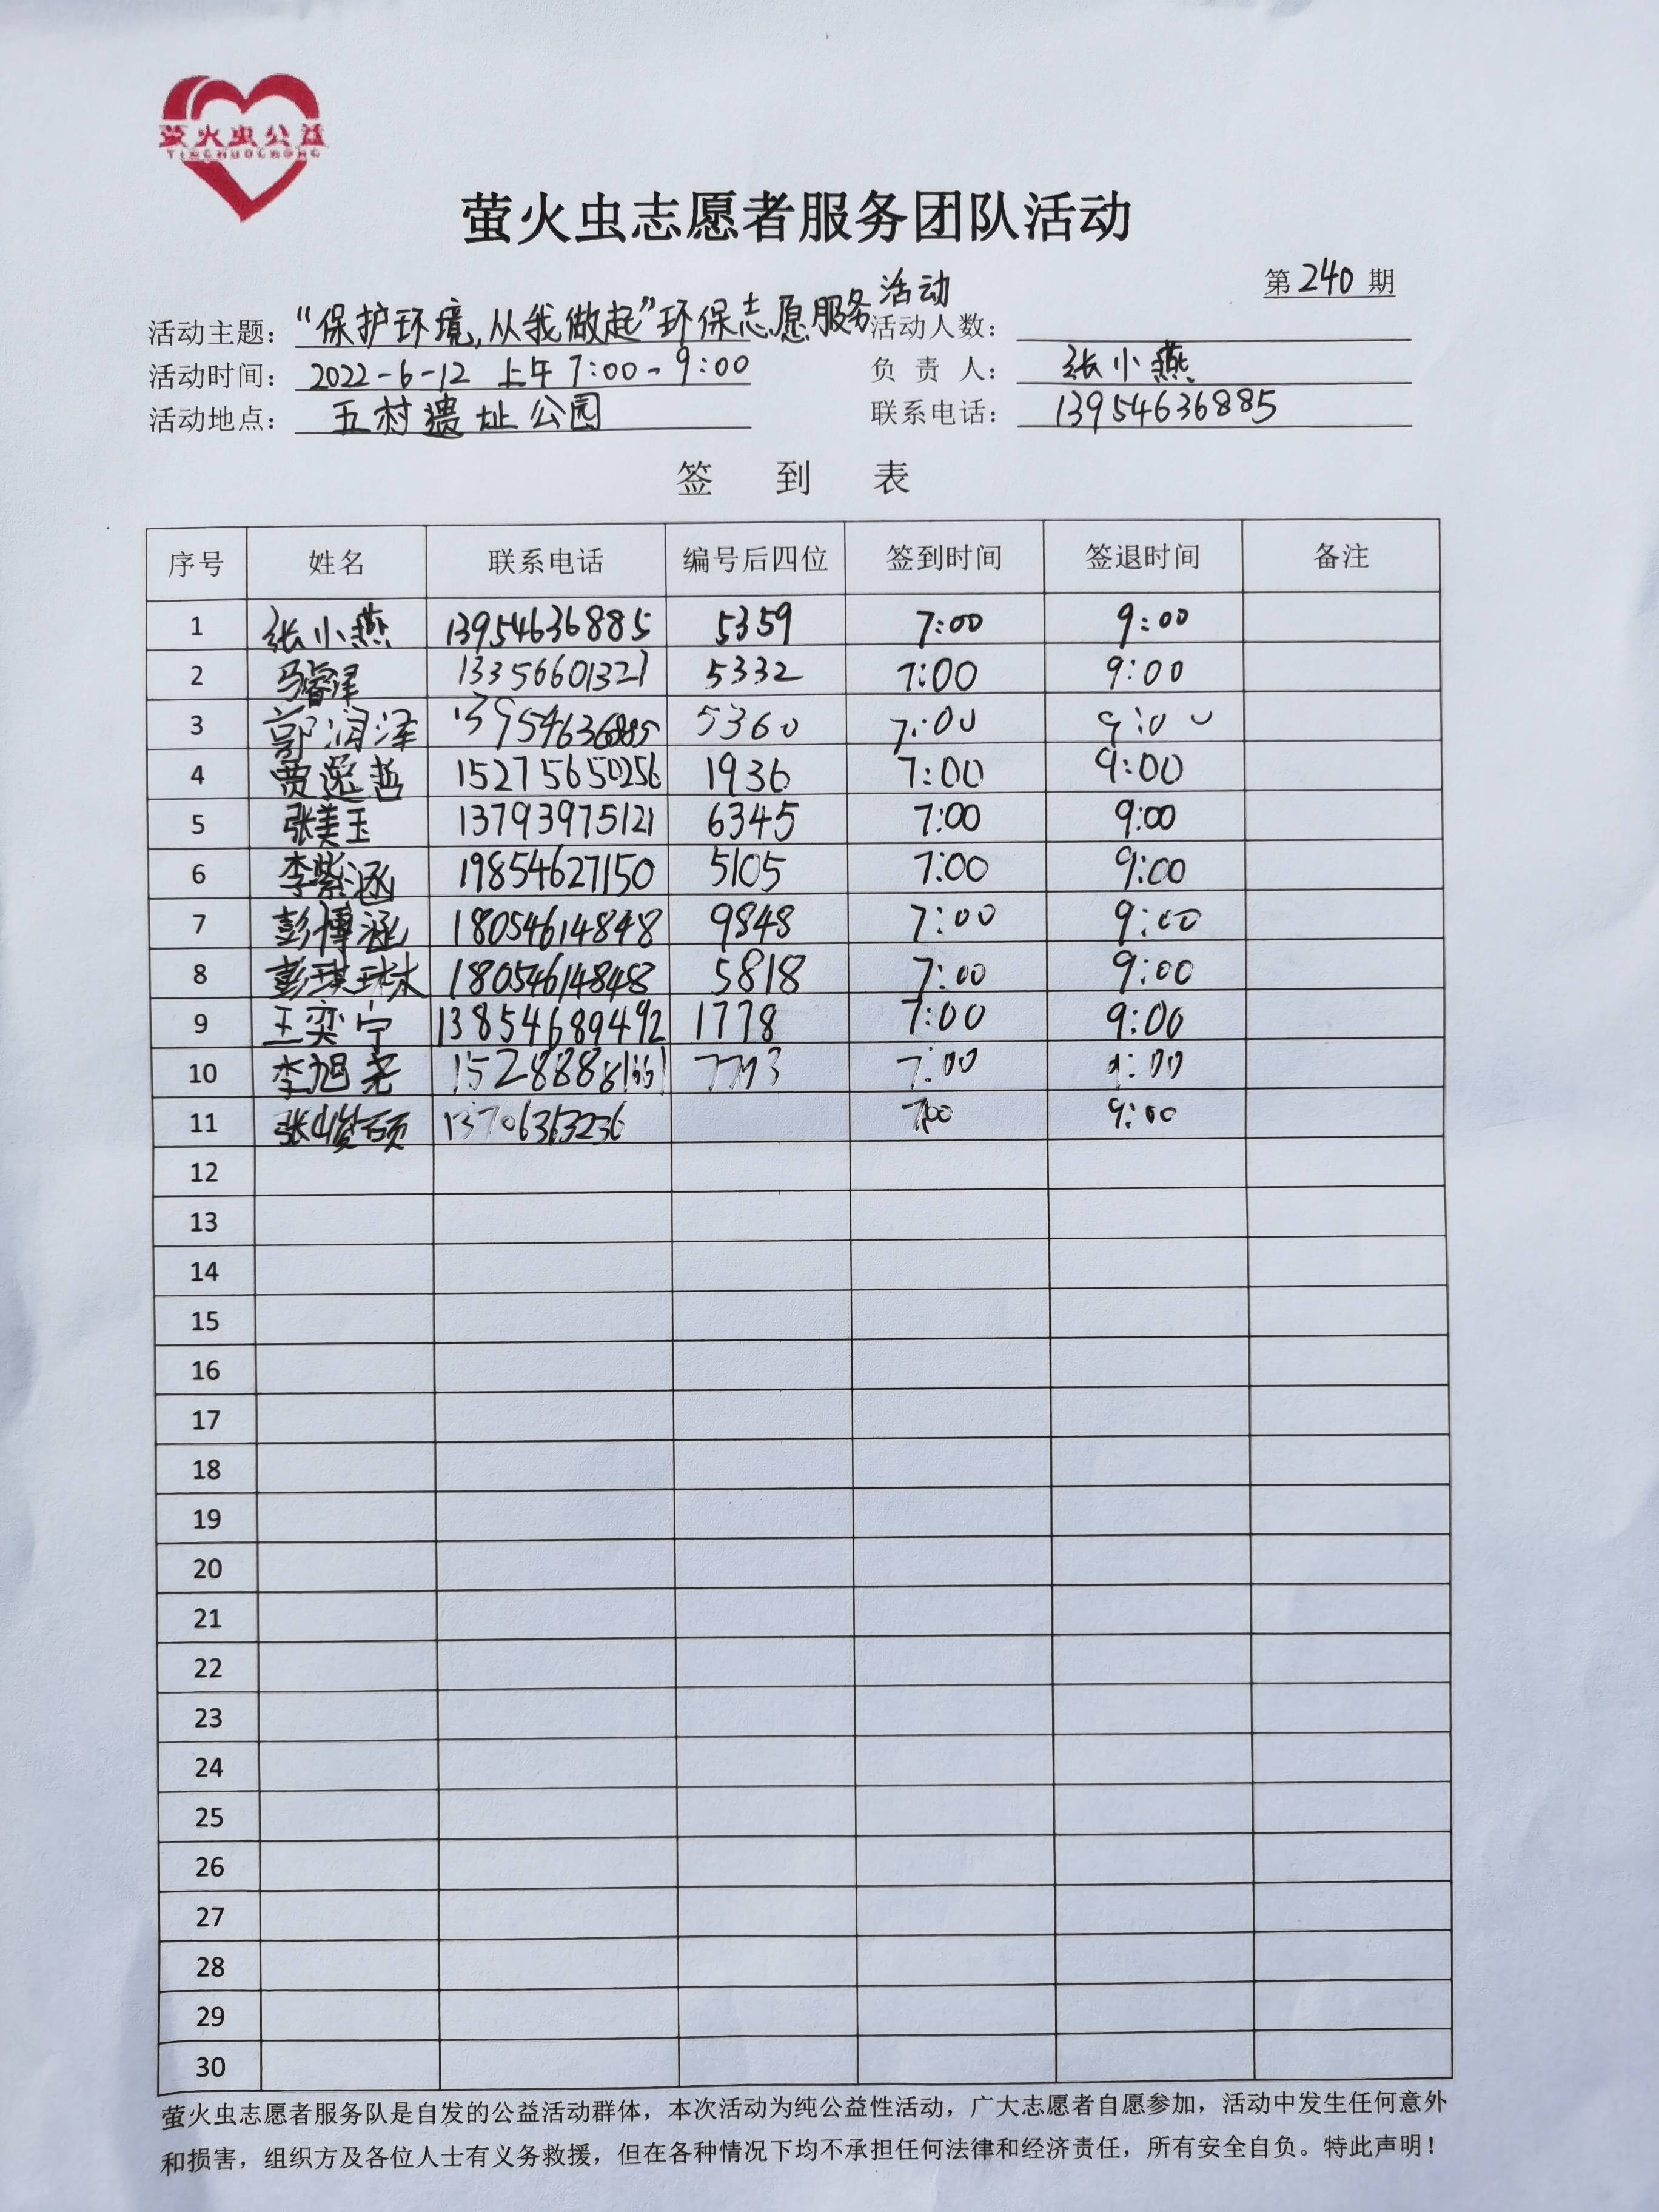 萤火虫公益
YINGHUOCHONG
萤火虫志愿者服务团队活动
第 240 期
活动主题： “保护环境,从我做起”环保志愿服务活动 活动人数：
活动时间： 2022-6-12 上午 7:00-9:00 负 责 人： 张小燕
活动地点： 五村遗址公园 联系电话： 13954636885
签 到 表
序号 姓名 联系电话 编号后四位 签到时间 签退时间 备注
1 张小燕 13954636885 5359 7:00 9:00
2 马睿泽 13356601321 5332 7:00 9:00
3 郭润泽 13954636885 5360 7:00 9:00
4 贾逸哲 15275650256 1936 7:00 9:00
5 张美玉 13793975121 6345 7:00 9:00
6 李紫涵 19854627150 5105 7:00 9:00
7 彭博涵 18054614848 9848 7:00 9:00
8 彭琪琳 18054614848 5818 7:00 9:00
9 王奕宁 13854689492 1778 7:00 9:00
10 李旭尧 7:00 9:00
11 张峻硕 13706363236 7:00 9:00
12
13
14
15
16
17
18
19
20
21
22
23
24
25
26
27
28
29
30
萤火虫志愿者服务队是自发的公益活动群体，本次活动为纯公益性活动，广大志愿者自愿参加，活动中发生任何意外
和损害，组织方及各位人士有义务救援，但在各种情况下均不承担任何法律和经济责任，所有安全自负。特此声明！